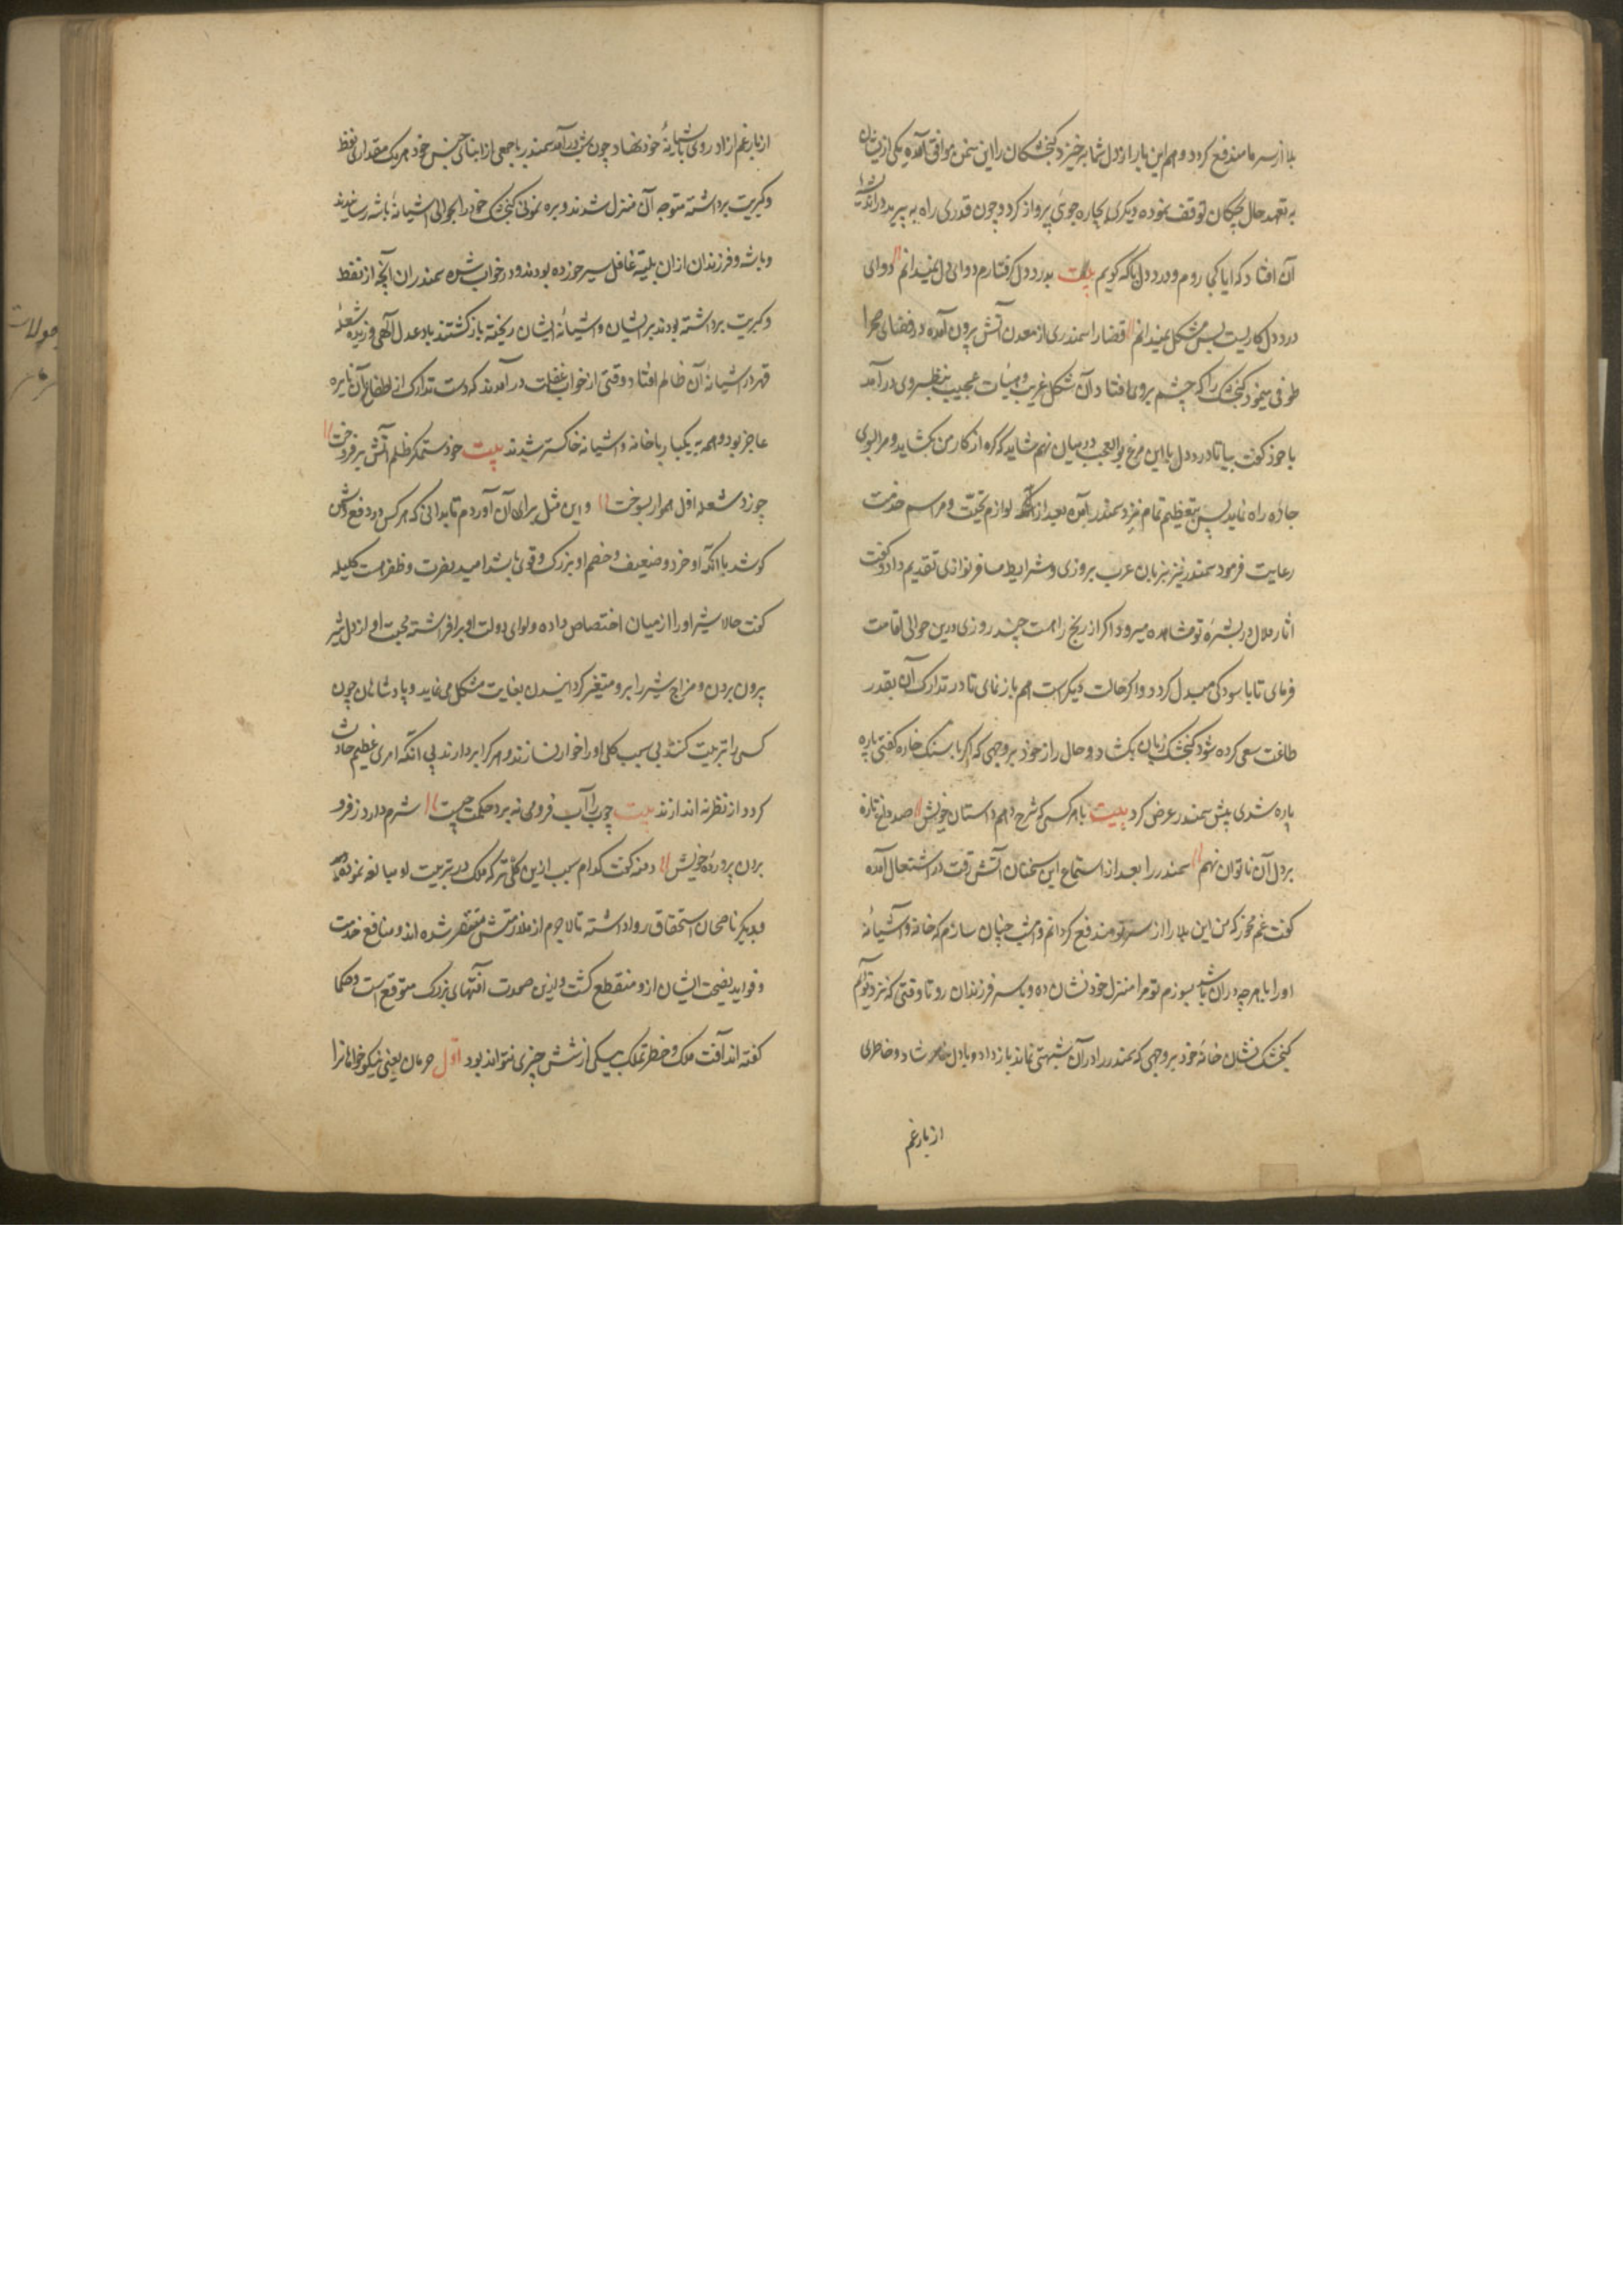 بلا از سر ما مندفع کردد و هم این بار از دل شما برخیزد کنجشکان را این سخن موافق آمده یکی از ایشان
به تعهد حال بچکان توقف نموده و دیکری بچاره جوئی پرواز کرد و چون قدری راه به پرید در اندیشهٔ
آن افتاد که ایا کجا روم و درد دل باکه کویم بیت بدرد دل کرفتارم دوای دل نمیدانم دوای
درد دل کاریست بس مشکل نمیدانم قضا را سمندری از معدن آتش برون آمده در فضای صحرا
طوفی مینمود کنجشک را که چشم بروی افتاد و آن شکل غریب و هیئات عجیب بنظر وی درآمد
با خود کفت بیا تا درد دل با این مرغ بوالعجب در میان نهم شاید که کره از کار من بکشاید و مرا بسوی
جاده راه نماید پس بتعظیم تمام نزد سمندر آمده بعد از لوازم تحیت و مراسم خدمت
رعایت فرمود سمندر نیز بزبان عرب بروزی و شرایط مسافر نوازی تقدیم داد و کفت
اثار ملال در بشرهٔ تو مشاهده میرود اکر از رنج راهست چند روزی درین حوالی اقامت
فرمای تا باسودکی مبدل کردد و اکر حالت دیکر است هم باز نمای تا در تدارک آن بقدر
طاقت سعی کرده شود کنجشک زبان بکشاد و حال زار خود بروجهی که اکر با سنک خاره کفتی پاره
پاره شدی پیش سمندر عرض کرد بیت با هر کسی که شرح دهم داستان خویش صد داغ تازه
بر دل آن ناتوان نهم سمندر را بعد از استماع این سخنان آتش رقت در اشتعال آمده
کفت غم مخور که من این بلا را از سر تو مندفع کردانم و امشب چنان سازم که خانه و آشیانهٔ
او را با هرچه دران باشد بسوزم تو مرا منزل خود نشان ده و با سر فرزندان رو تا وقتی که نزد تو آیم
کنجشک نشان خانهٔ خود بروجهی که سمندر را در آن شبهتی نماند باز داد و با دل شاد و خاطری
از بار غم
از بار غم ازاد روی باشیانهٔ خود نهاد چون شب درآمد سمندر با جمعی از ابنای جنس خود هر یک مقداری نفط
و کبریت برداشته متوجه آن منزل شدند و بره نمونی کنجشک خود را بحوالی اشیانهٔ باشه رسانیدند
و باشه و فرزندان ازان بلیه غافل سیر خورده بودند و در خواب شده سمندران آنچه از نفط
و کبریت برداشته بودند بر ایشان و اشیانهٔ ایشان ریخته باز کشتند باد عدل الهی وزیده شعلهٔ
قهر در اشیانهٔ آن ظالم افتاد و وقتی از خواب غفلت درآمدند که دست تدارک از اطفای آن نایره
عاجز بود و همه بیکبار با خانه و اشیانه خاکستر شدند بیت خود ستمکر ظلم آتش برفروخت
چو زد شعله اول هموار بسوخت و این مثل برای آن آوردم تا بدانی که هر کس در دفع دشمن
کوشد با آنکه او خرد و ضعیف و خصم او بزرک و قوی باشد امید نصرت و ظفر هست کلیله
کفت حالا شیر او را از میان اختصاص داده و لوای دولت او برافراشته محبت او از دل شیر
برون بردن و مزاج شیر را برو متغیر کردانیدن بغایت مشکل می نماید و پادشاهان چون
کسی را تربیت کنند بی سبب کلی او را خوار نسازند و هر کرا بردارند بی انکه امری عظیم حادث
کردد از نظر نه اندازند بیت چوب را آب فرو می نه برد حکمت چیست شرم دارد ز فرو
بردن پروردهٔ خویش دمنه کفت کدام سبب ازین کلی تر که ملک در تربیت او مبالغه نموده
و بدیکر ناصحان استحقاق روا داشته تا لاجرم از ملازمتش متنفر شده اند و منافع خدمت
و فواید نصیحت ایشان ازو منقطع کشت و ازین صورت افتهای بزرک متوقع است و حکما
کفته اند آفت ملک و خطر تملک بیکی از شش چیز می تواند بود اول حرمان یعنی نیکو خواهانرا